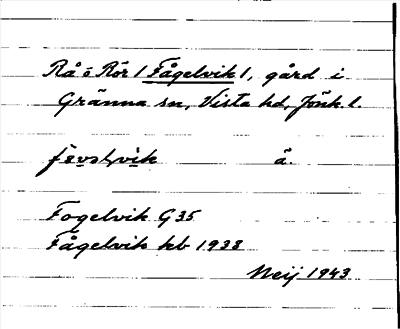 Rå o Rör / Fågelvik /, gård i
Gränna sn, Vista hd, Jönk l.
å
Fogelvik G35
Fågelvik kb 1938
Meij 1943